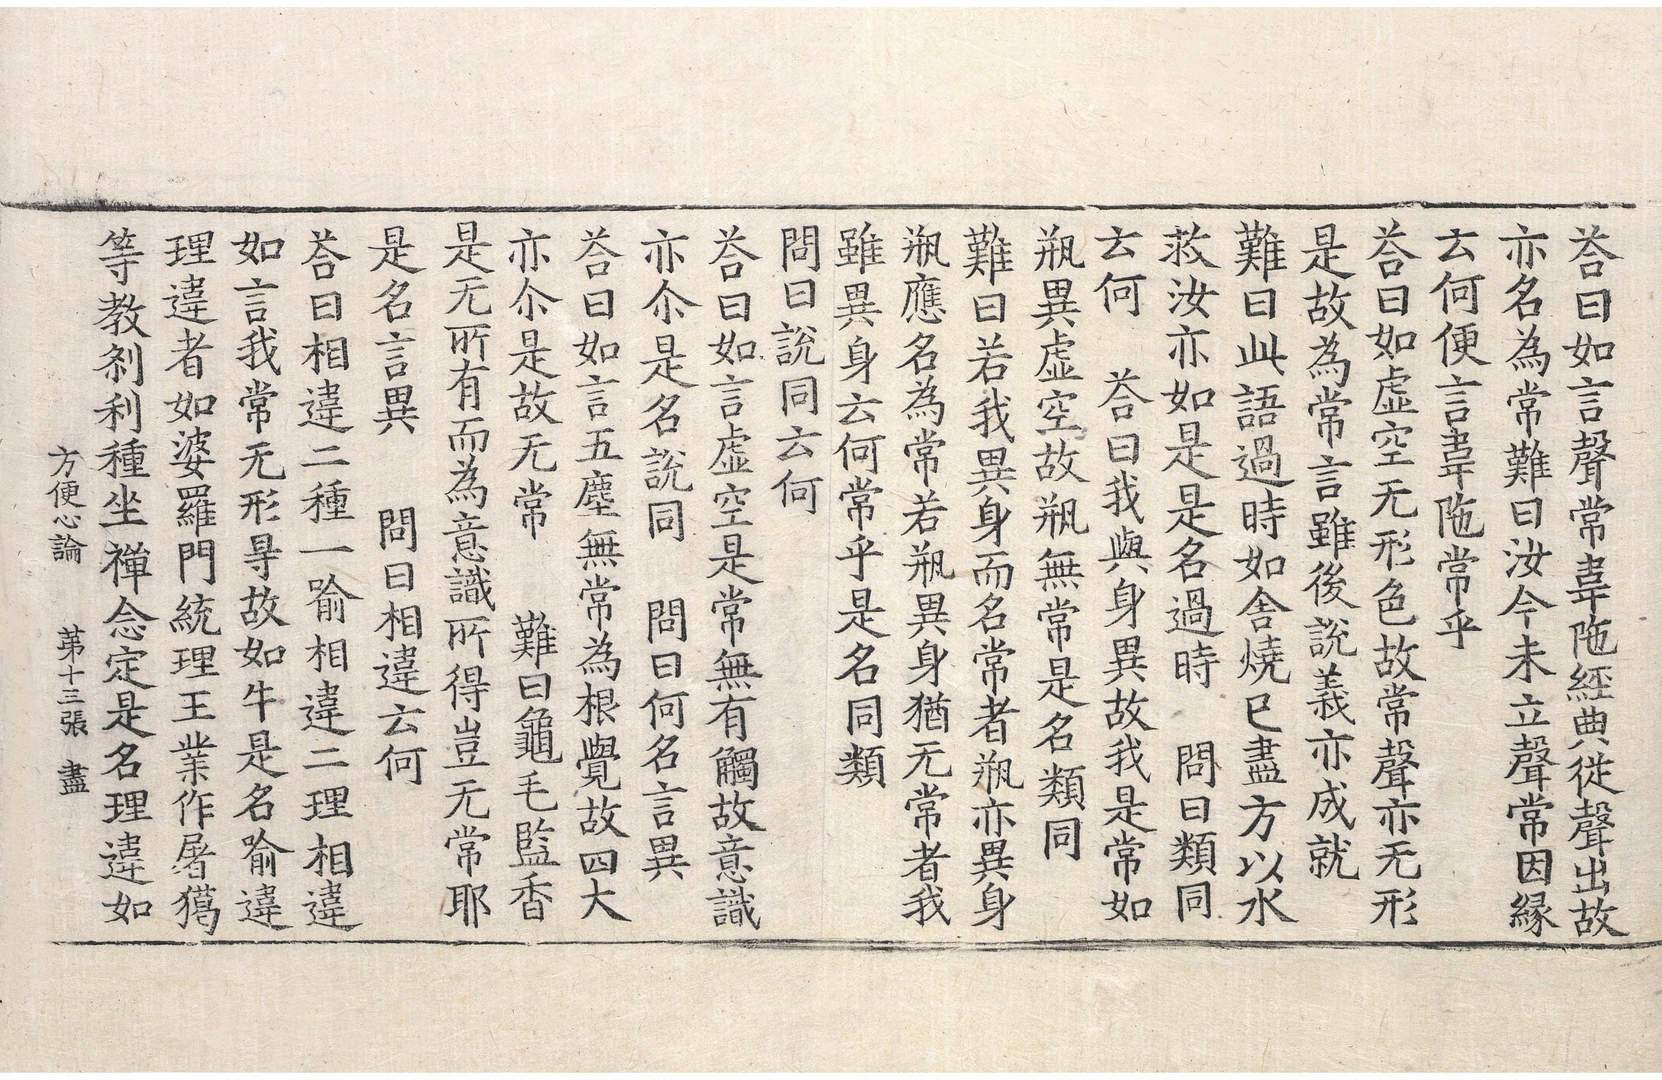 荅曰如言聲常韋陁經典從聲出故
亦名為常難曰汝今未立聲常因縁
云何便言韋陁常乎
荅曰如虚空无形色故常聲亦无形
是故為常言雖後說義亦成就
難曰此語過時如舎燒已盡方以水
救汝亦如是是名過時　問曰類同
云何　荅曰我與身異故我是常如
瓶異虚空故瓶無常是名類同
難曰若我異身而名常者瓶亦異身
瓶應名為常若瓶異身猶无常者我
雖異身云何常乎是名同類
問曰說同云何
荅曰如言虚空是常無有觸故意識
亦尒是名說同　問曰何名言異
荅曰如言五塵無常為根覺故四大
亦尒是故无常　難曰龜毛監香
是无所有而為意識所得豈无常耶
是名言異　問曰相違云何
荅曰相違二種一喻相違二理相違
如言我常无形㝵故如牛是名喻違
理違者如婆羅門統理王業作屠獦
等教刹利種坐禪念定是名理違如
方便心論　苐十三張　盡